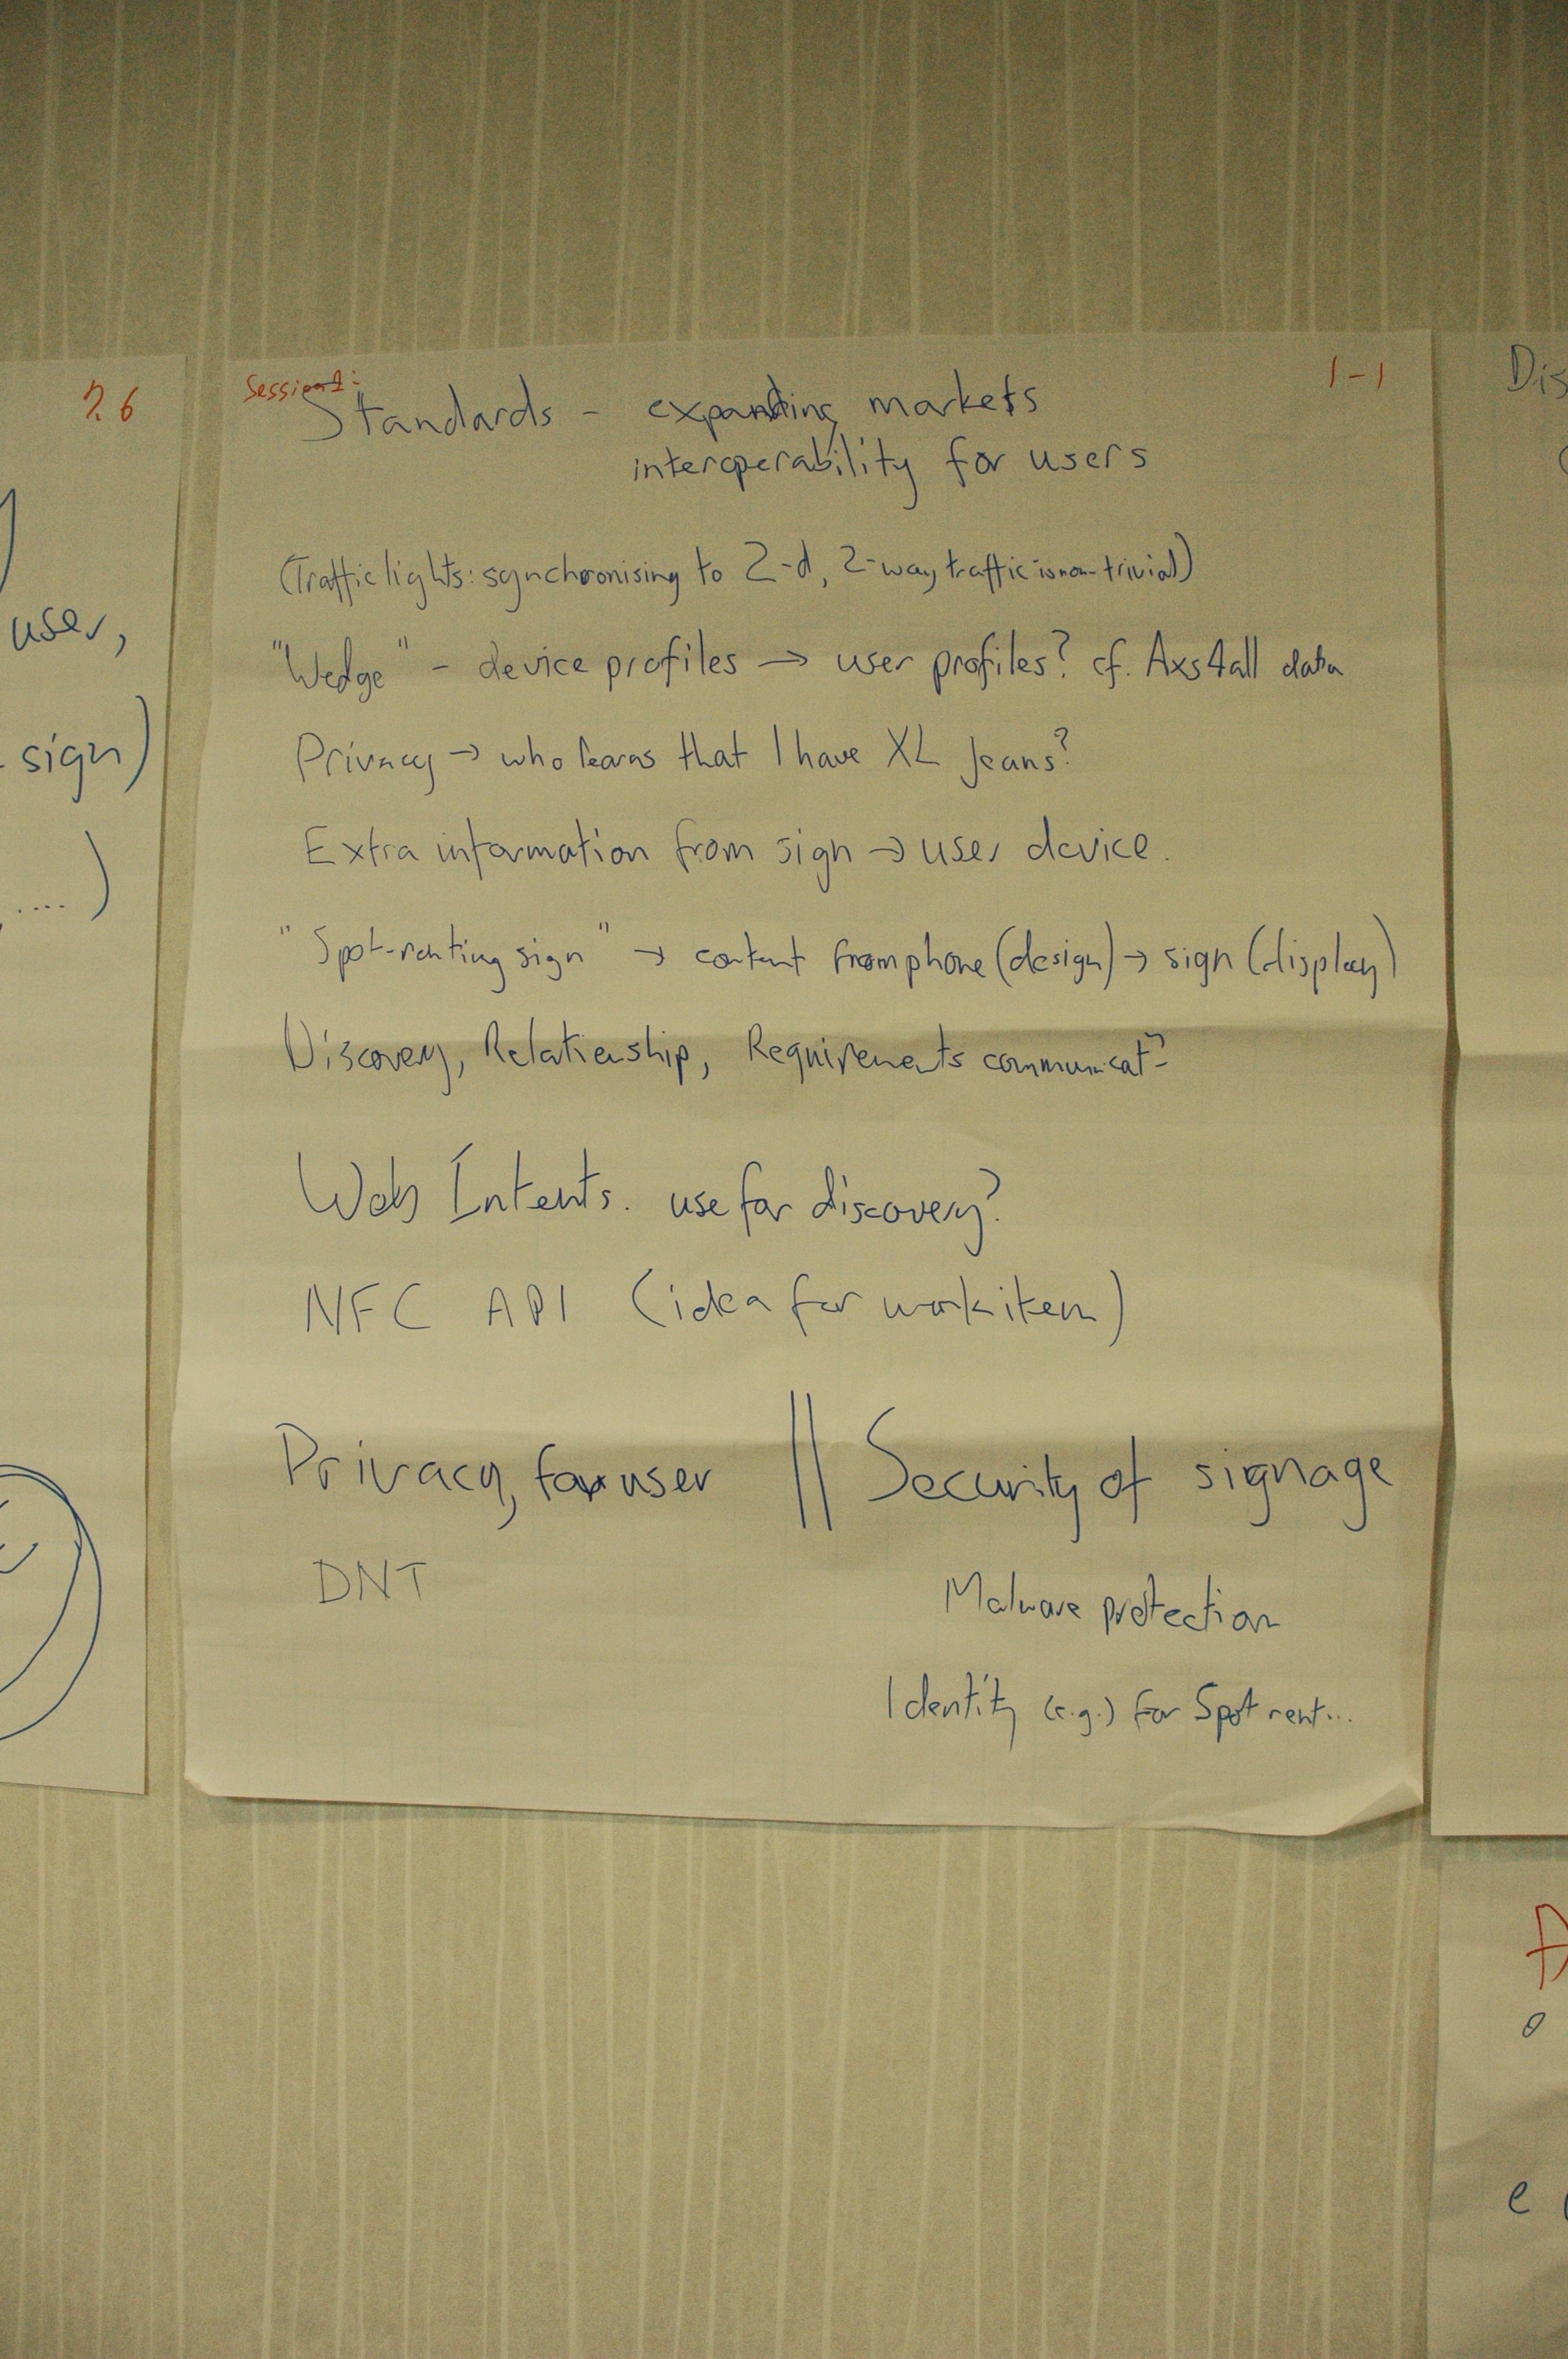 7.6
user,
sign)
....)
Session 1:
1-1
Standards - expanding markets
interoperability for users
(Traffic lights: synchronising to 2-d, 2-way traffic is non-trivial)
"Wedge" - device profiles → user profiles? cf. Axs4all data
Privacy → who learns that I have XL Jeans?
Extra information from sign → user device.
"Spot-renting sign" → content from phone (design) → sign (display)
Discovery, Relationship, Requirements communicat-
Web Intents. use for discovery?
NFC API (idea for work item)
Privacy, for user || Security of signage
DNT
Malware protection
Identity (e.g.) for Spot rent...
Dis